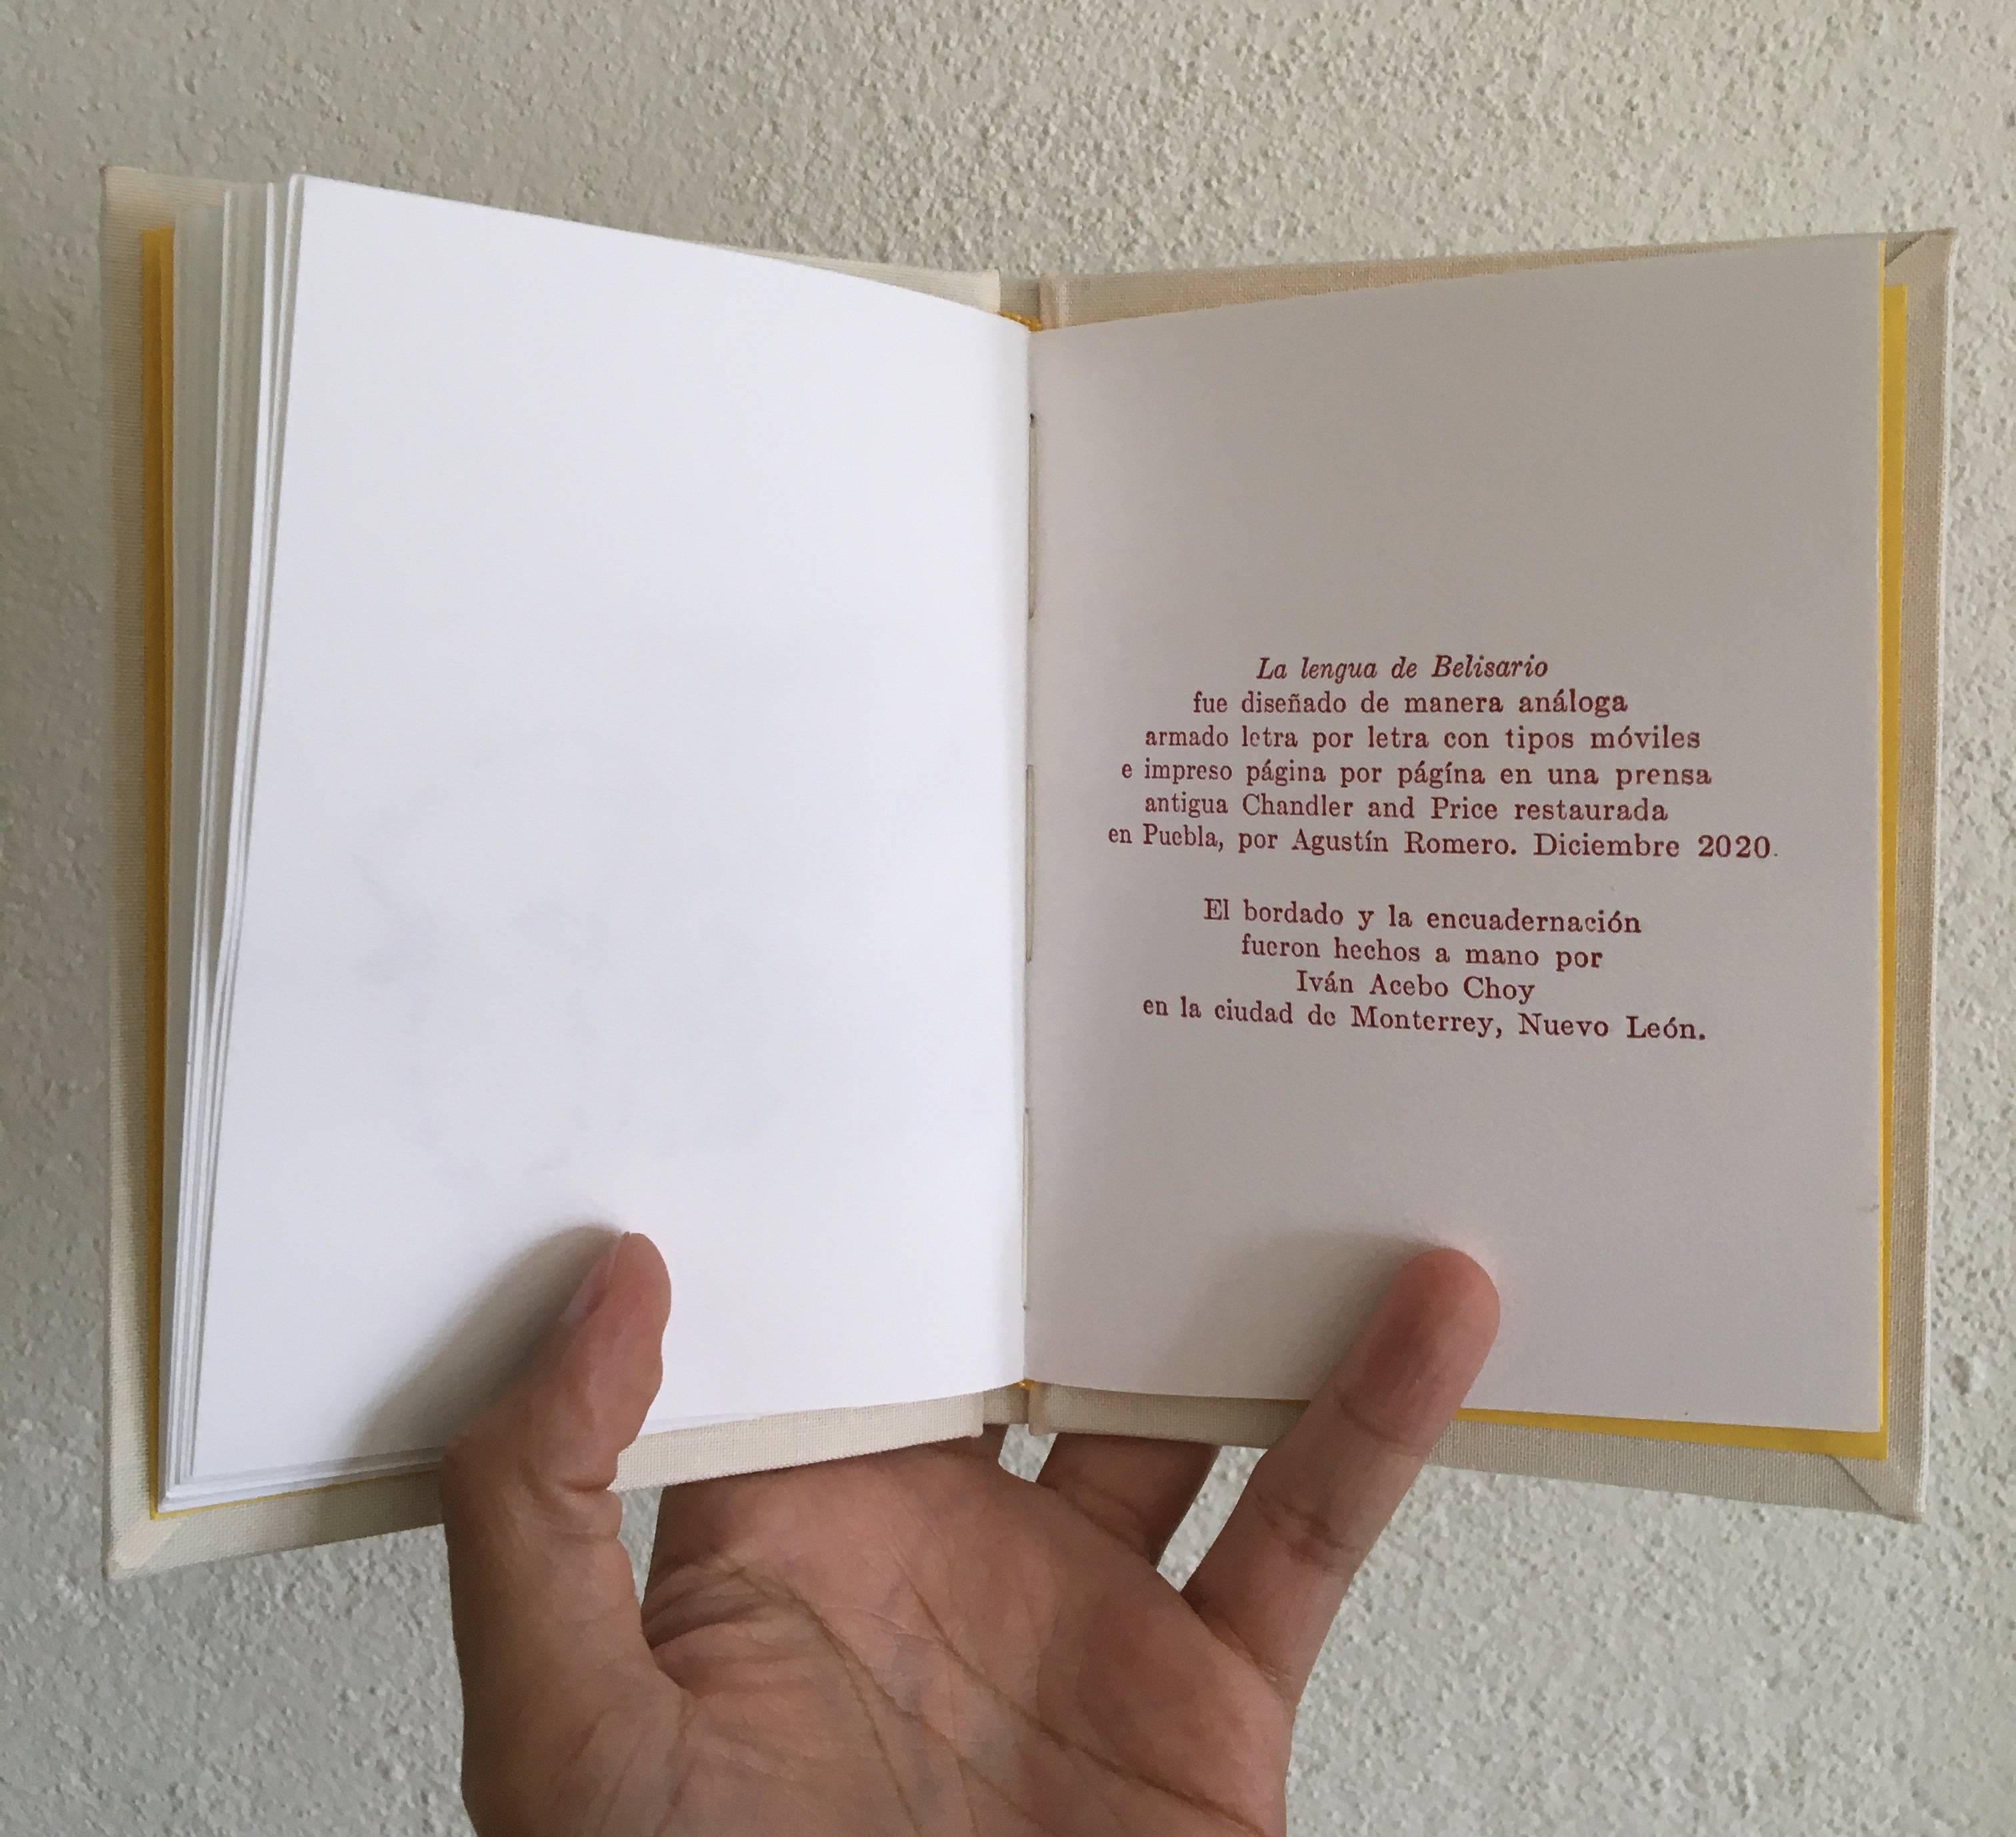 La lengua de Belisario
fue diseñado de manera análoga
armado letra por letra con tipos móviles
e impreso página por págína en una prensa
antigua Chandler and Price restaurada
en Puebla, por Agustín Romero. Diciembre 2020.
El bordado y la encuadernación
fueron hechos a mano por
Iván Acebo Choy
en la ciudad de Monterrey, Nuevo León.